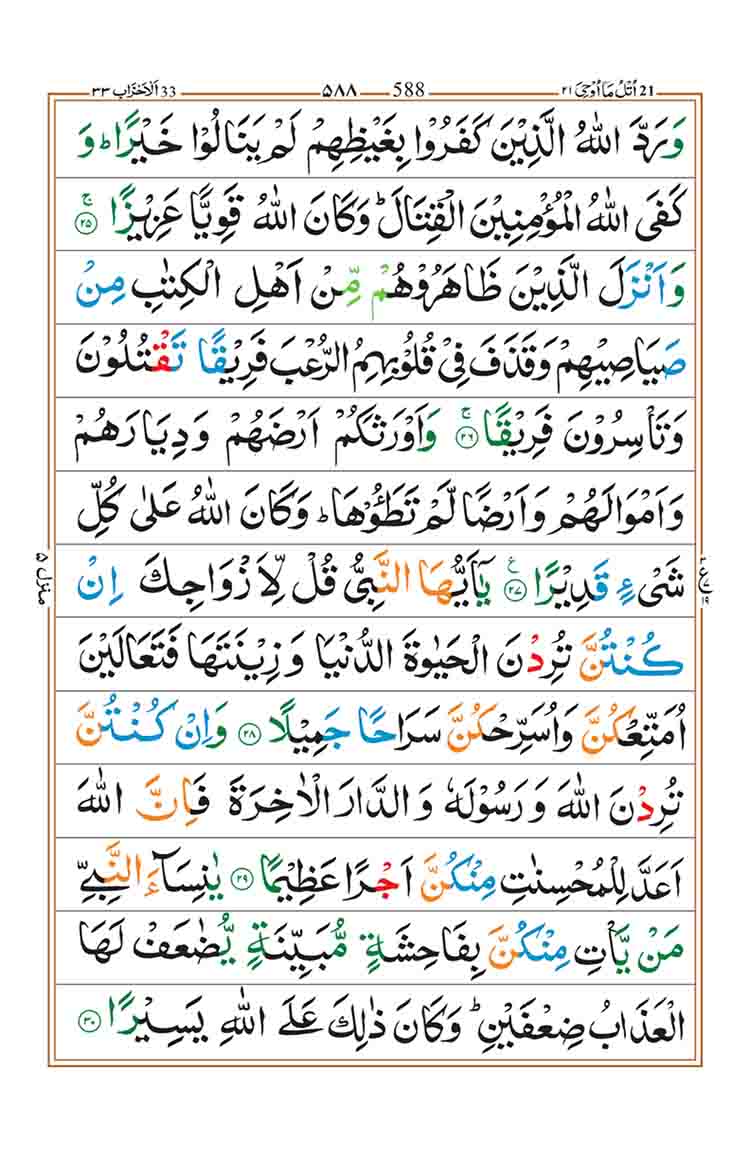 21 اُتْلُ مَاۤ اُوْحِیَ ٢١ 588 ۵۸۸ 33 اَلْاَحْزَاب ٣٣
وَرَدَّ اللّٰهُ الَّذِیْنَ كَفَرُوْا بِغَیْظِهِمْ لَمْ یَنَالُوْا خَیْرًا ؕ وَ
كَفَی اللّٰهُ الْمُؤْمِنِیْنَ الْقِتَالَ ؕ وَكَانَ اللّٰهُ قَوِیًّا عَزِیْزًا ۚ‏﴿۲۵﴾
وَاَنْزَلَ الَّذِیْنَ ظَاهَرُوْهُمْ مِّنْ اَهْلِ الْكِتٰبِ مِنْ
صَیَاصِیْهِمْ وَقَذَفَ فِیْ قُلُوْبِهِمُ الرُّعْبَ فَرِیْقًا تَقْتُلُوْنَ
وَتَاْسِرُوْنَ فَرِیْقًا ۚ‏﴿۲۶﴾ وَاَوْرَثَكُمْ اَرْضَهُمْ وَدِیَارَهُمْ
وَاَمْوَالَهُمْ وَاَرْضًا لَّمْ تَطَـُٔوْهَا ؕ وَكَانَ اللّٰهُ عَلٰی كُلِّ
شَیْءٍ قَدِیْرًا ﴿۲۷﴾ ع یٰۤاَیُّهَا النَّبِیُّ قُلْ لِّاَزْوَاجِكَ اِنْ
كُنْتُنَّ تُرِدْنَ الْحَیٰوةَ الدُّنْیَا وَزِیْنَتَهَا فَتَعَالَیْنَ
اُمَتِّعْكُنَّ وَاُسَرِّحْكُنَّ سَرَاحًا جَمِیْلًا ﴿۲۸﴾ وَاِنْ كُنْتُنَّ
تُرِدْنَ اللّٰهَ وَرَسُوْلَهٗ وَالدَّارَ الْاٰخِرَةَ فَاِنَّ اللّٰهَ
اَعَدَّ لِلْمُحْسِنٰتِ مِنْكُنَّ اَجْرًا عَظِیْمًا ﴿۲۹﴾ یٰنِسَآءَ النَّبِیِّ
مَنْ یَّاْتِ مِنْكُنَّ بِفَاحِشَةٍ مُّبَیِّنَةٍ یُّضٰعَفْ لَهَا
الْعَذَابُ ضِعْفَیْنِ ؕ وَكَانَ ذٰلِكَ عَلَی اللّٰهِ یَسِیْرًا ﴿۳۰﴾
منزل ۵